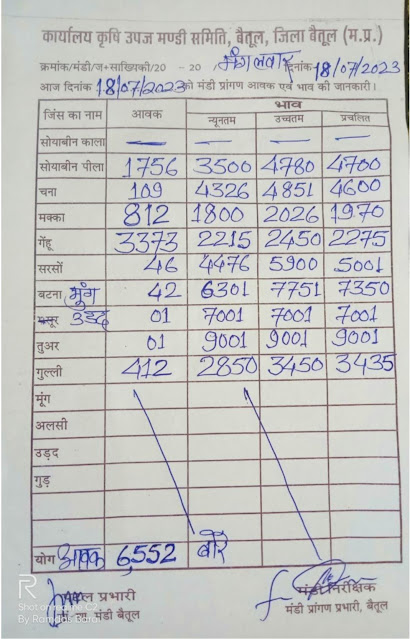 कार्यालय कृषि उपज मण्डी समिति, बैतूल, जिला बैतूल (म.प्र.)
क्रमांक/मंडी/ज+साख्यिकी/20 - 20 /मंगलवार दिनांक 18/07/2023
आज दिनांक 18/07/2023 को मंडी प्रांगण आवक एवं भाव की जानकारी।
जिंस का नाम आवक भाव
न्यूनतम उच्चतम प्रचलित
सोयाबीन काला — — — —
सोयाबीन पीला 1756 3500 4780 4700
चना 109 4326 4851 4600
मक्का 812 1800 2026 1970
गेंहू 3373 2215 2450 2275
सरसों 46 4476 5900 5001
बटना मुंग 42 6301 7751 7350
उडद 01 7001 7001 7001
तुअर 01 9001 9001 9001
गुल्ली 412 2850 3450 3435
मूंग
अलसी
उड़द
गुड़
योग आवक 6,552 बोरे
प्रभारी मंडी निरीक्षक
मंडी बैतूल मंडी प्रांगण प्रभारी, बैतूल
R
Shot on realme C2
By Ramdas Barai